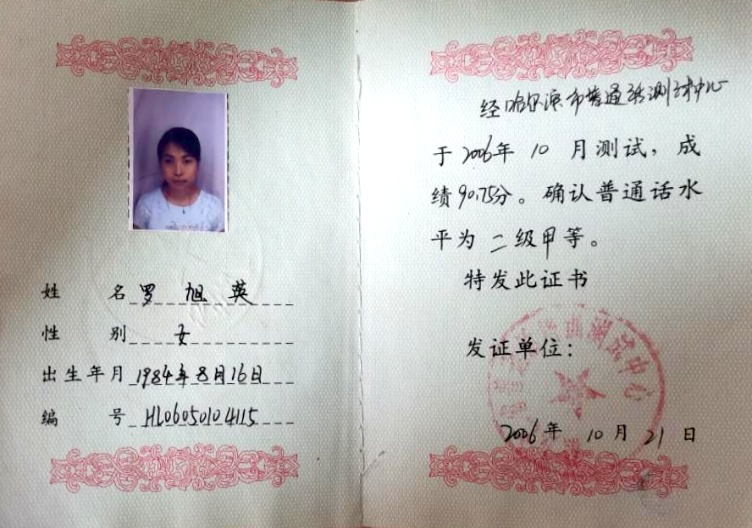 姓 名 罗旭英
性 别 女
出生年月 1984年8月16日
编 号 HL06050104115
经哈尔滨市普通话测试中心
于2006年10月测试，成
绩90.75分。确认普通话水
平为二级甲等。
特发此证书
发证单位：
2006年10月21日